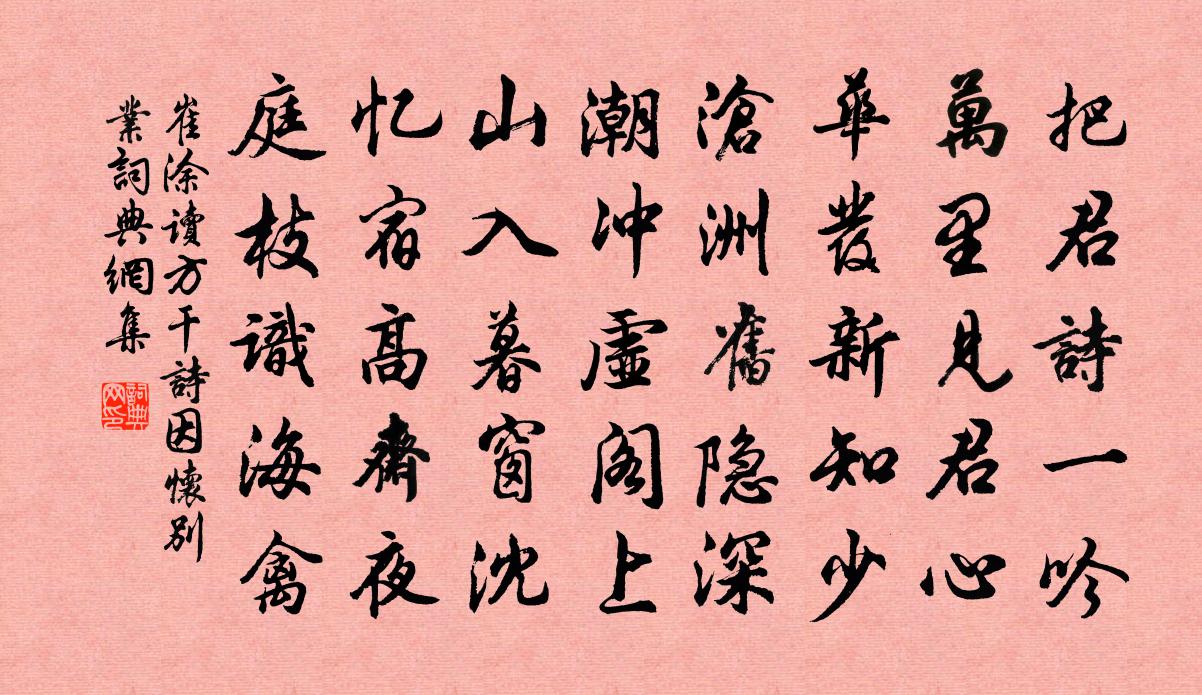 把君詩一吟
萬里見君心
華髮新知少
滄洲舊隐深
潮冲虛阁上
山入暮窗沈
忆宿高齋夜
庭枝識海禽
崔涂讀方干詩因懷別
業詞典網集
詞典
网印